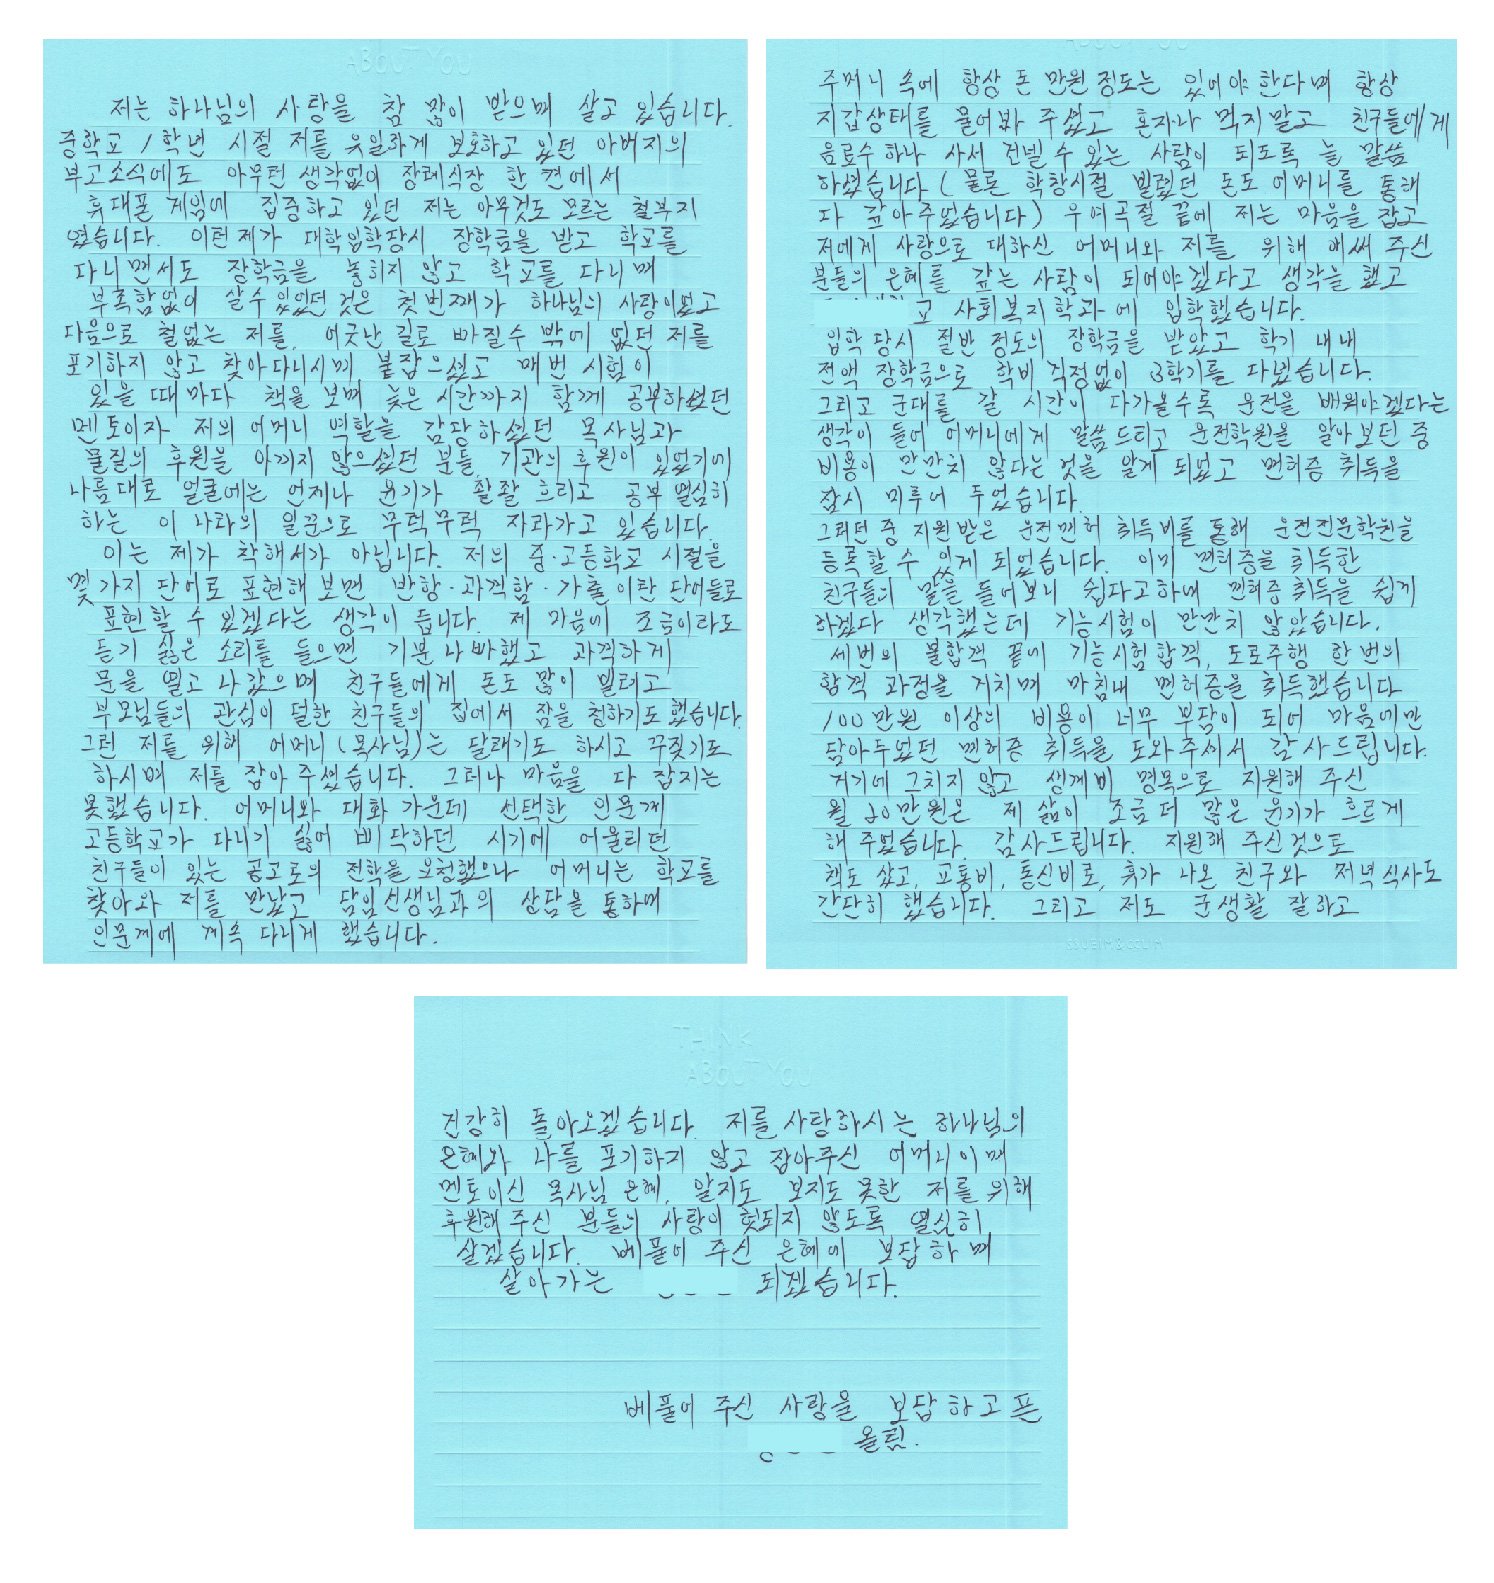 ABOUT YOU
저는 하나님의 사랑을 참 많이 받으며 살고 있습니다.
중학교 1학년 시절 저를 유일하게 보호하고 있던 아버지의
부고소식에도 아무런 생각없이 장례식장 한 켠에서
휴대폰 게임에 집중하고 있던 저는 아무것도 모르는 철부지
였습니다. 이런 제가 대학입학당시 장학금을 받고 학교를
다니면서도 장학금을 놓히지 않고 학교를 다니며
부족함없이 살 수 있었던 것은 첫번째가 하나님의 사랑이었고
다음으로 철없는 저를, 어긋난 길로 빠질 수 밖에 없던 저를
포기하지 않고 찾아다니시며 붙잡으셨고 매번 시험이
있을 때마다 책을 보며 늦은 시간까지 함께 공부하셨던
멘토이자 저의 어머니 역할을 감당하셨던 목사님과
물질의 후원을 아끼지 않으셨던 분들, 기관의 후원이 있었기에
나름대로 얼굴에는 언제나 윤기가 좔좔 흐리고 공부 열심히
하는 이 나라의 일꾼으로 무럭무럭 자라가고 있습니다.
이는 제가 착해서가 아닙니다. 저의 중·고등학교 시절을
몇 가지 단어로 표현해 보면 반항·과격함·가출이란 단어들로
표현할 수 있겠다는 생각이 듭니다. 제 마음에 조금이라도
듣기 싫은 소리를 들으면 기분 나빠했고 과격하게
문을 열고 나갔으며 친구들에게 돈도 많이 빌리고
부모님들의 관심이 덜한 친구들의 집에서 잠을 청하기도 했습니다.
그런 저를 위해 어머니(목사님)는 달래기도 하시고 꾸짖기도
하시며 저를 잡아 주셨습니다. 그러나 마음을 다 잡지는
못했습니다. 어머니와 대화 가운데 선택한 인문계
고등학교가 다니기 싫어 삐딱하던 시기에 어울리던
친구들이 있는 공고로의 전학을 요청했으나 어머니는 학교를
찾아와 저를 만났고 담임선생님과의 상담을 통하며
인문계에 계속 다니게 했습니다.
주머니 속에 항상 돈 만원 정도는 있어야 한다며 항상
지갑상태를 물어봐 주셨고 혼자나 먹지말고 친구들에게
음료수 하나 사서 건넬 수 있는 사람이 되도록 늘 말씀
하셨습니다 (물론 학창시절 빌렸던 돈도 어머니를 통해
다 갚아주었습니다) 우여곡절 끝에 저는 마음을 잡고
저에게 사랑으로 대하신 어머니와 저를 위해 애써 주신
분들의 은혜를 갚는 사람이 되어야겠다고 생각을 했고
교 사회복지학과에 입학했습니다.
입학 당시 절반 정도의 장학금을 받았고 학기 내내
전액 장학금으로 학비 걱정없이 3학기를 다녔습니다.
그리고 군대를 갈 시간이 다가올수록 운전을 배워야겠다는
생각이 들어 어머니에게 말씀드리고 운전학원을 알아보던 중
비용이 만만치 않다는 것을 알게 되었고 면허증 취득을
잠시 미루어 두었습니다.
그러던 중 지원받은 운전면허 취득비를 통해 운전전문학원을
등록할 수 있게 되었습니다. 이미 면허증을 취득한
친구들의 말을 들어보니 쉽다고하며 면허증 취득을 쉽게
하겠다 생각했는데 기능시험이 만만치 않았습니다.
세번의 불합격 끝에 기능시험합격, 도로주행 한번의
합격 과정을 거치며 마침내 면허증을 취득했습니다
100만원 이상의 비용이 너무 부담이 되어 마음에만
담아두었던 면허증 취득을 도와주셔서 감사드립니다.
거기에 그치지 않고 생계비 명목으로 지원해 주신
월 20만원은 제 삶이 조금 더 많은 윤기가 흐르게
해 주었습니다. 감사드립니다. 지원해 주신 것으로
책도 샀고, 교통비, 통신비로, 휴가 나온 친구와 저녁식사도
간단히 했습니다. 그리고 저도 군생활 잘하고
THINK
ABOUT YOU
건강히 돌아오겠습니다. 저를 사랑하시는 하나님의
은혜와 나를 포기하지 않고 잡아주신 어머니이며
멘토이신 목사님 은혜, 알지도 보지도 못한 저를 위해
후원해 주신 분들의 사랑이 헛되지 않도록 열심히
살겠습니다. 베풀어 주신 은혜에 보답하며
살아가는 되겠습니다.
베풀어 주신 사랑을 보답하고픈
올림.